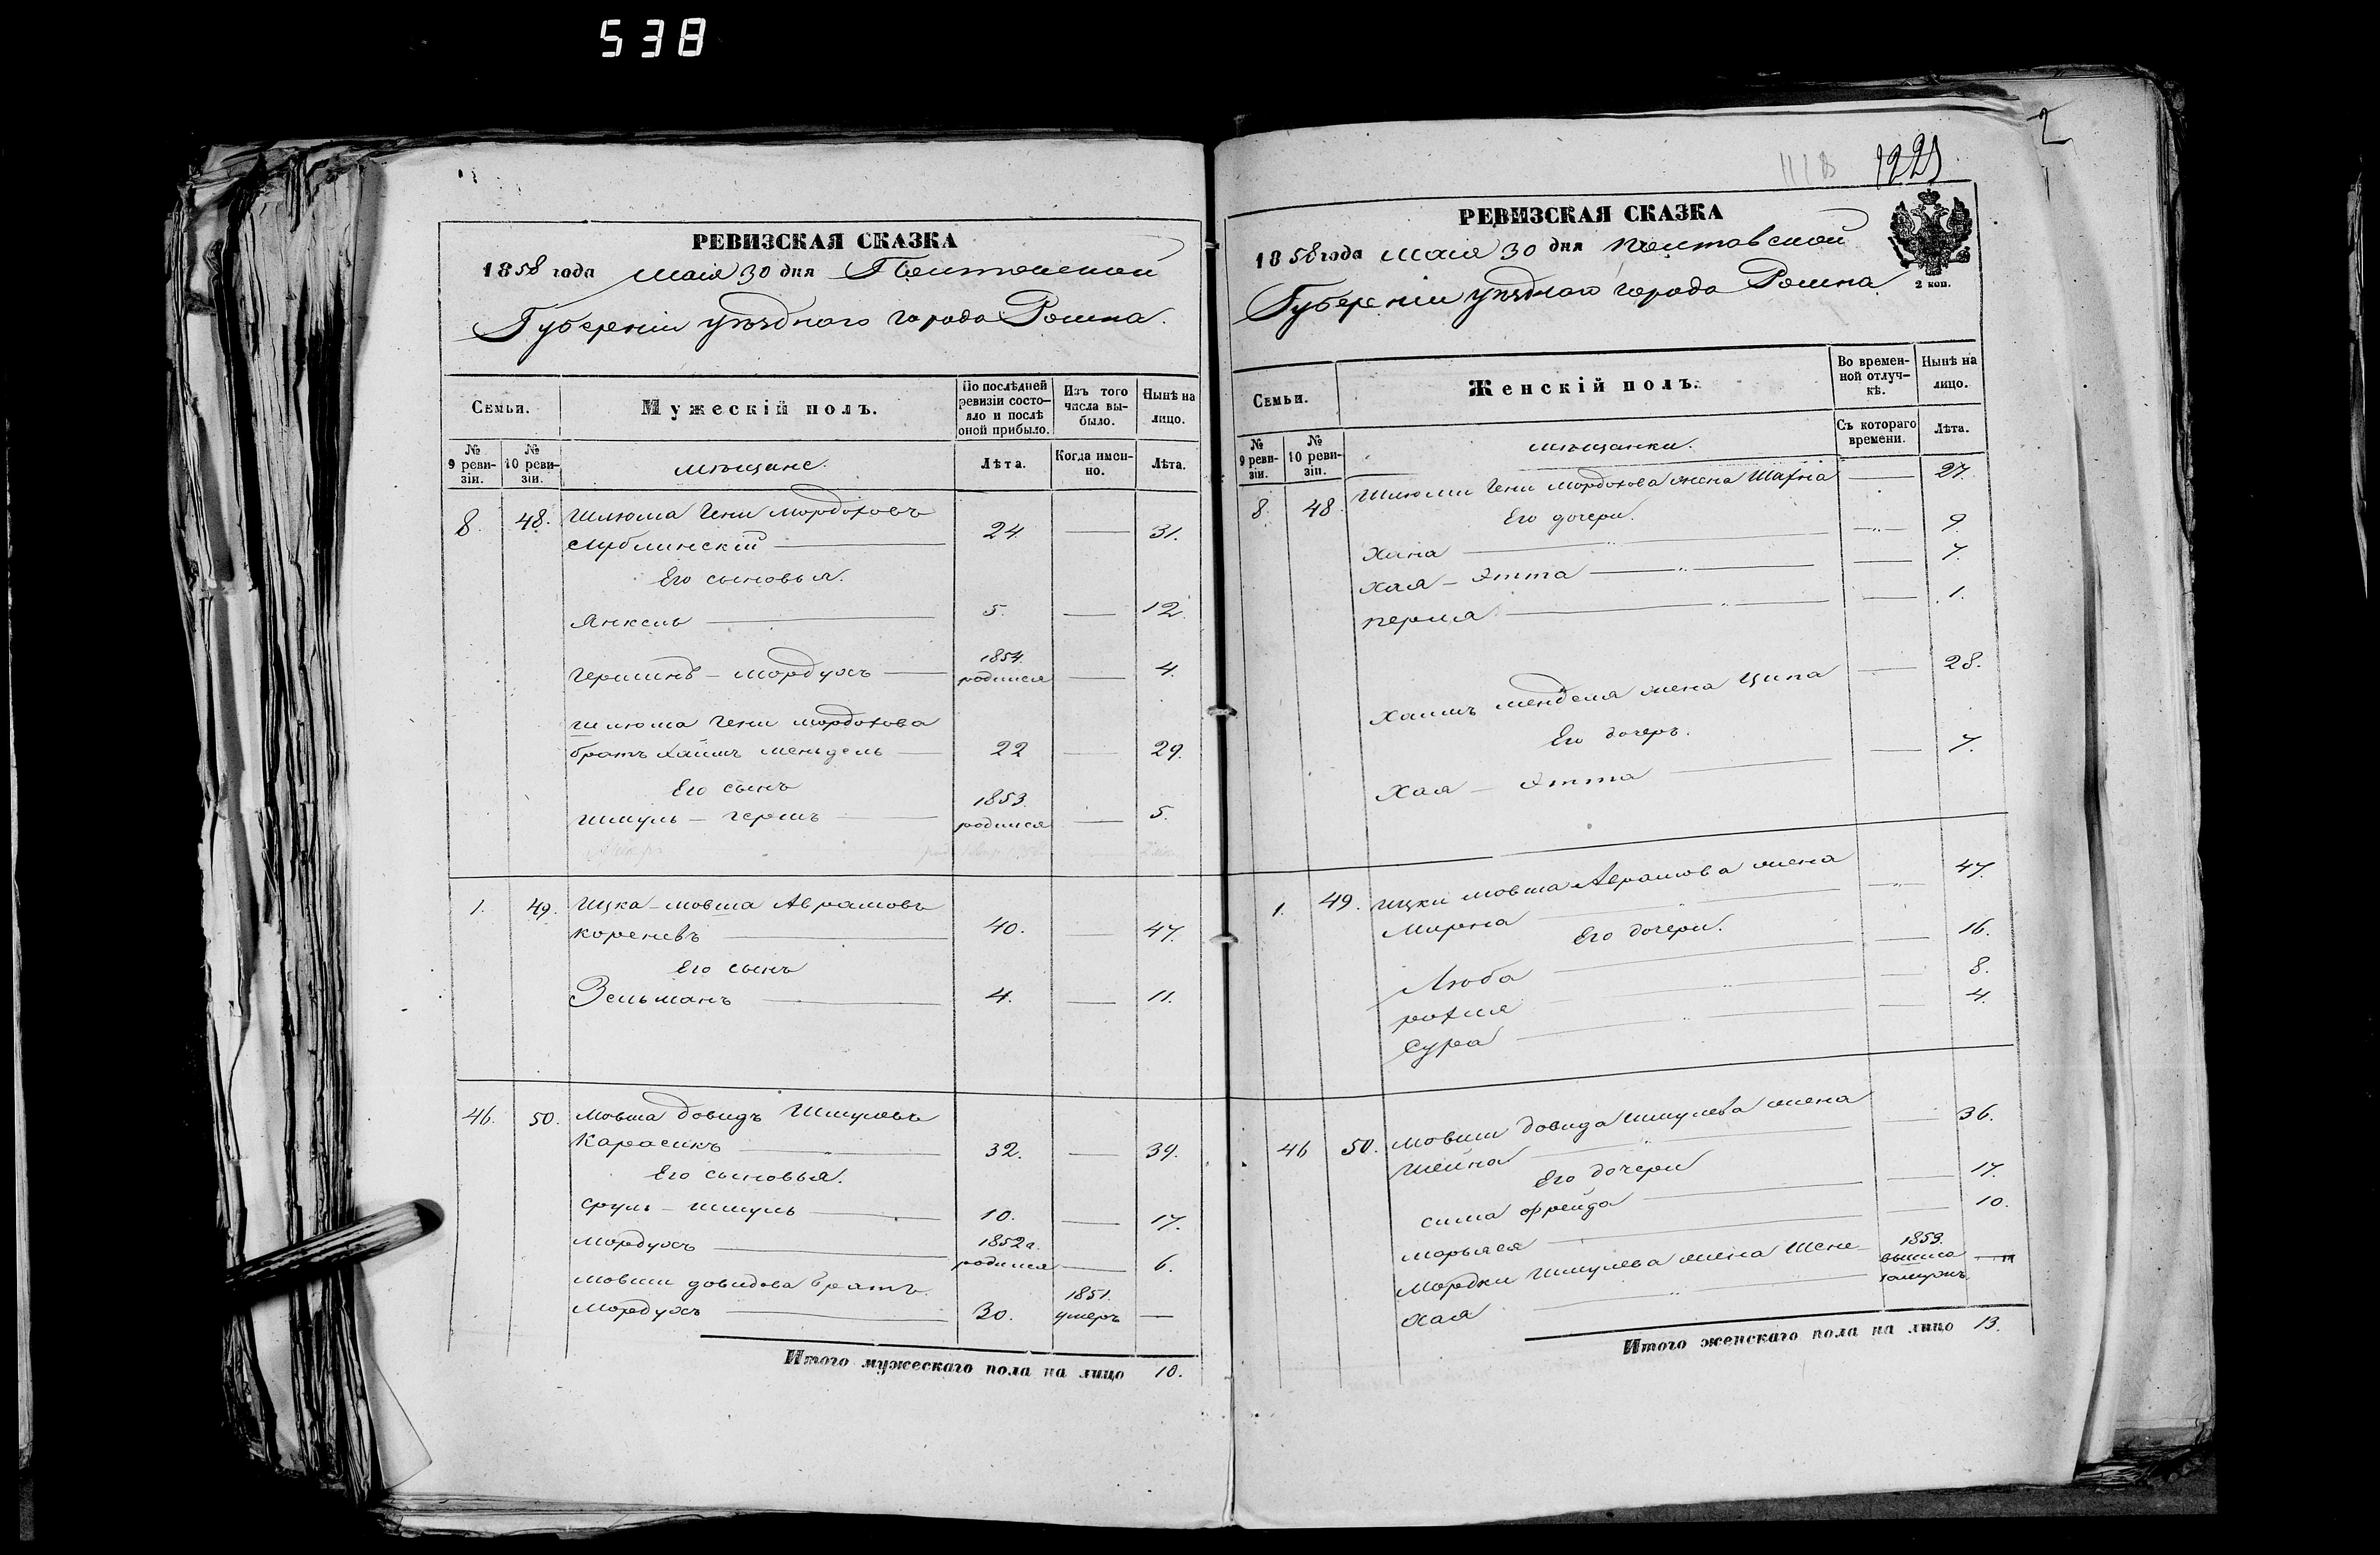 538
РЕВИЗСКАЯ СКАЗКА
1858 года Маія 30 дня Полтавской
Губерніи уѣзднаго города Ромна.
Семьи.
Мужескій полъ.
По послѣдней
ревизіи состо-
яло и послѣ
оной прибыло.
Изъ того
числа вы-
было.
Нынѣ на
лицо.
№
9 реви-
зіи.
№
10 реви-
зіи.
мѣщане.
Лѣта.
Когда имен-
но.
Лѣта.
8. 48. Шлюма Гени Мордоховъ
24. 31.
Его сыновья.
Янкель 5. 12.
1854.
Мордухъ родился 4.
Шлюма Гени Мордохова
братъ Хаимъ Мендель 22 29.
Его сынъ
1853.
Шмуль - Гершъ родился 5.
1. 49. Ицка - Мовша Аврамовъ
Кореневъ 40. 47.
Его сынъ
Зельманъ 4. 11.
46. 50. Мовша Довидъ Шмулевъ
Карасикъ 32. 39.
Его сыновья.
Сруль - Шмуль 10. 17.
1852 г.
Мордухъ родился 6.
Мовши Довидова братъ
1851.
Мордухъ 30. умеръ
Итого мужескаго пола на лицо 10.
2
РЕВИЗСКАЯ СКАЗКА
1858 года Маія 30 дня Полтавской
Губерніи уѣзднаго города Ромна
2 коп.
Семьи.
Женскій полъ.
Во времен-
ной отлуч-
кѣ.
Нынѣ на
лицо.
№
9 реви-
зіи.
№
10 реви-
зіи.
мѣщанки.
Съ котораго
времени.
Лѣта.
8. 48. Шлюми Гени Мордохова жена 27.
Его дочери.
Хана 9.
Хая - Этта 7.
Перля 1.
Хаимъ Менделя жена Ципа 28.
Его дочерь.
Хая - Этта 7.
1. 49. Ицки Мовша Аврамова жена
Мирна 47.
Его дочери.
Люба 16.
Рохля 8.
Сура 4.
46 50. Мовши Довида Шмулева жена
Шейна 36.
Его дочери
Сима Фрейда 17.
Марьяся 10.
1853.
Мордки Шмулева жена Шене- вышла
Хая замужъ.
Итого женскаго пола на лицо 13.